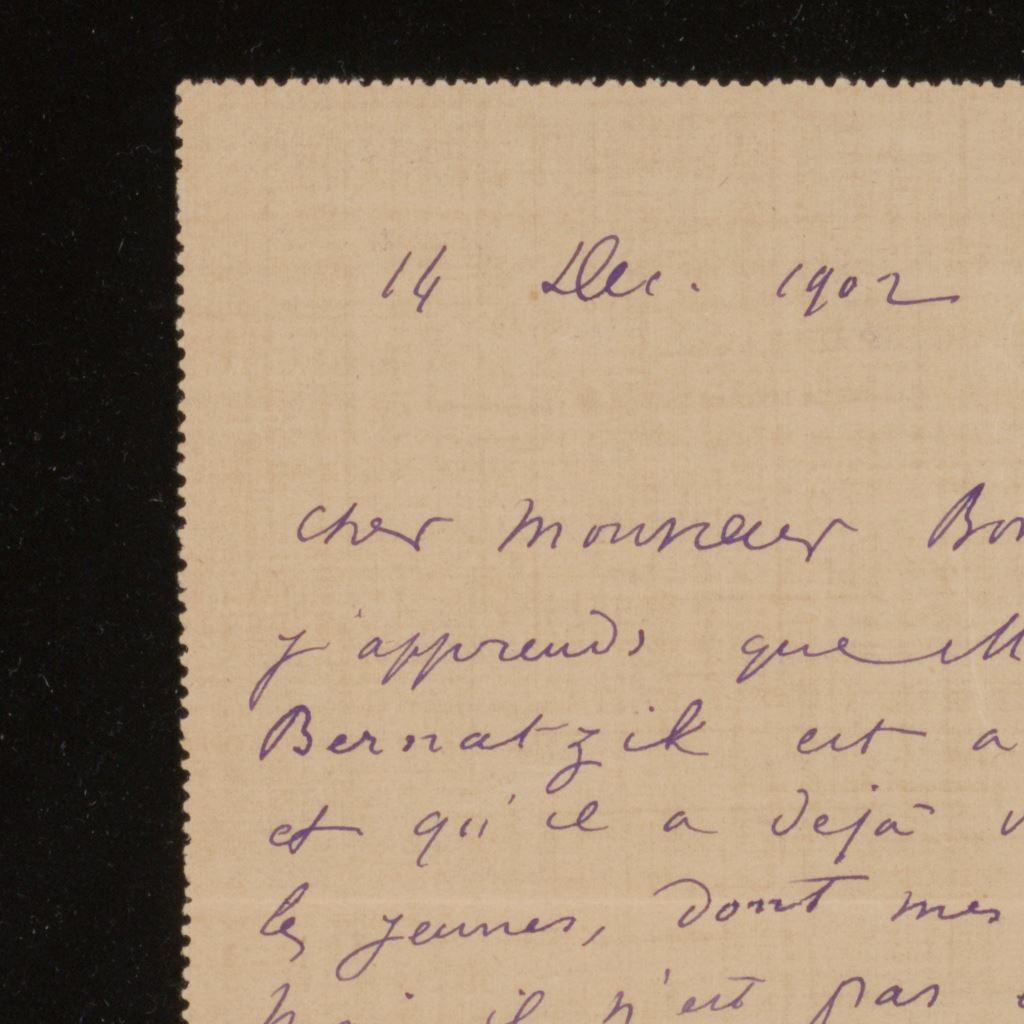 14 Dec. 1902
cher Monsieur Bon
j'apprends que M
Bernatzik est a
et qu'il a dejà v
les jeunes, dont mes
il n'est pas